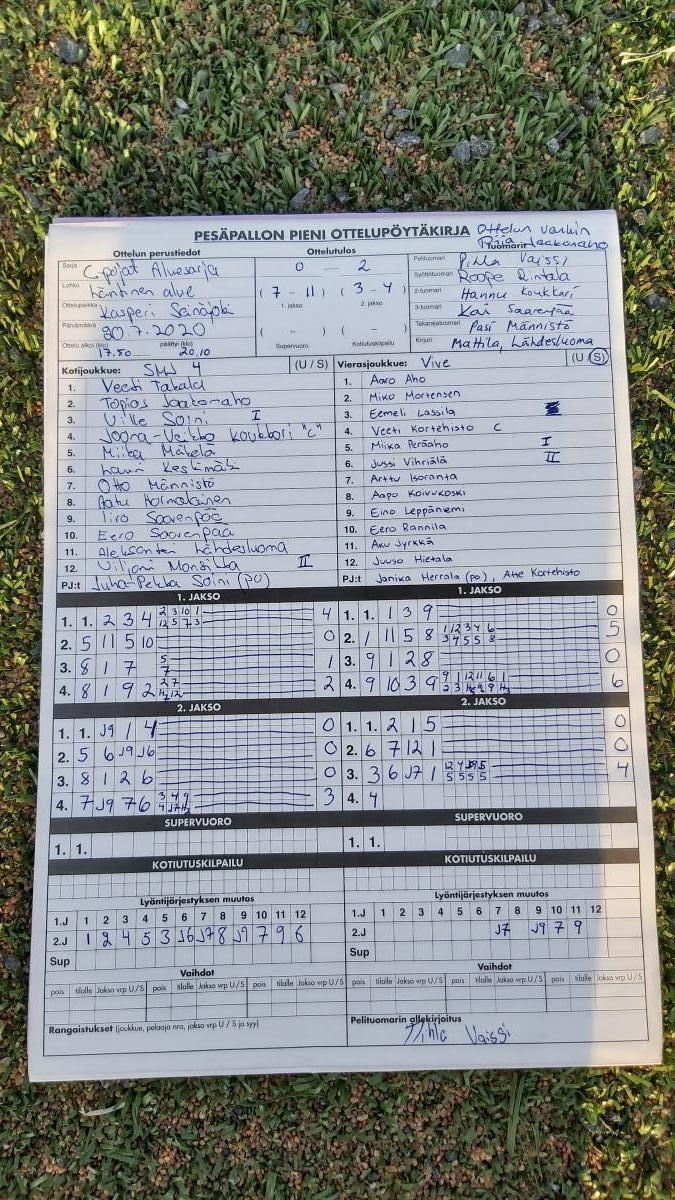 PESÄPALLON PIENI OTTELUPÖYTÄKIRJA
Ottelun vanhin
Tuomarit
Ottelun perustiedot
Sarja C-pojat Aluesarja
Lohko Läntinen alue
Ottelupaikka Kasperi Seinäjoki
Päivämäärä 20.7.2020
Ottelu alkoi (klo) 17.50 päättyi (klo) 20.10
Ottelutulos
0 — 2
( 7 - 11 ) ( 3 - 4 )
1. jakso 2. jakso
( - ) (
Supervuoro Kotiutuskilpailu
Pelituoman Pihla Vaissi
Syöttötuomari Roope Rintala
2-tuomari Hannu Koukkari
3-tuomari Kai Saarenpää
Takarajatuomari Pasi Männistö
Kirjuri Mattila, Lähdesluoma
Kotijoukkue: SMJ 4 (U / S)
1. Veeti Takala
2. Topias Jaakonaho
3. Ville Soini I
4. Joona-Veikko Koukkari "C"
5. Miika Mäkelä
6. Lauri Keskimäki
7. Otto Männistö
8. Aatu Holmalainen
9. Iiro Saarenpää
10. Eero Saarenpää
11. Aleksanteri Lähdesluoma
12. Viljami II
PJ:t Juha-Pekka Soini (PO)
Vierasjoukkue: Vive (U / S)
1. Aaro Aho
2. Miko Mortensen
3. Eemeli Lassila
4. Veeti Kortehisto C
5. Miika Peräaho I
6. Jussi Vihriälä II
7. Arttu Isoranta
8. Aapo Koivukoski
9. Eino Leppäniemi
10. Eero Rannila
11. Aku Jyrkkä
12. Juuso Hietala
PJ:t Janika Herrala (po), Atte Kortehisto
1. JAKSO
1. 1. 2 3 4 4
2. 5 11 5 10 0
3. 8 1 7 5 7 1
4. 8 1 9 2 2
1. JAKSO
1. 1. 1 3 9 0
2. 1 11 5 8 5
3. 9 1 2 8 0
4. 9 10 3 9 6
2. JAKSO
1. 1. J9 1 4 0
2. 5 6 J9 J6 0
3. 8 1 2 6 0
4. 7 J9 7 6 3
2. JAKSO
1. 1. 2 1 5 0
2. 6 7 12 1 0
3. 3 6 J7 1 4
4. 4
SUPERVUORO
1. 1.
SUPERVUORO
1. 1.
KOTIUTUSKILPAILU
KOTIUTUSKILPAILU
Lyöntijärjestyksen muutos
1.J 1 2 3 4 5 6 7 8 9 10 11 12
2.J 1 2 4 5 3 J6 J7 8 J9 7 9 6
Sup
Lyöntijärjestyksen muutos
1.J 1 2 3 4 5 6 7 8 9 10 11 12
2.J J7 J9 7 9
Sup
Vaihdot
pois tilalle Jakso vrp U / S pois tilalle Jakso vrp U / S pois tilalle Jakso vrp U / S
Vaihdot
pois tilalle Jakso vrp U / S pois tilalle Jakso vrp U / S pois tilalle Jakso vrp U / S
Rangaistukset (joukkue, pelaaja nro, jakso vrp U / S ja syy)
Pelituomarin allekirjoitus
Pihla Vaissi